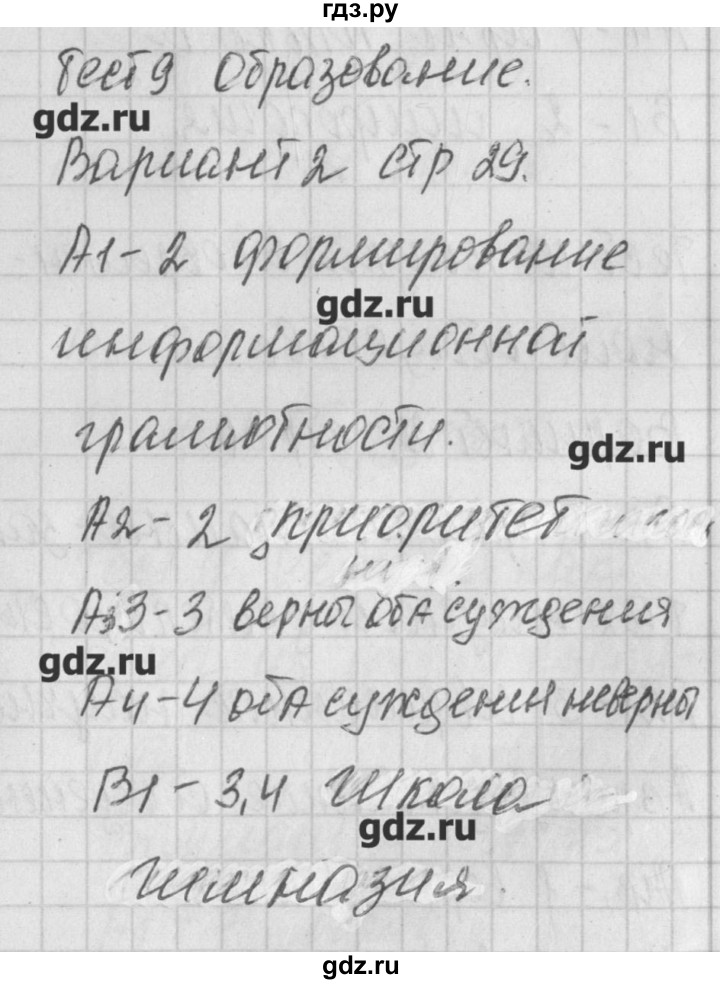 гдз.ру
Тест 9 Образование.
gdz.ru
Вариант 2 стр 29.
А1 - 2 формирование
gdz.ru
информационной
грамотности.
gdz.ru
А2 - 2 приоритет
А3 - 3 верны оба суждения
gdz.ru
А4 - 4 оба суждения неверны
В1 - 3,4 школа
gdz.ru
гимназия.
gdz.ru